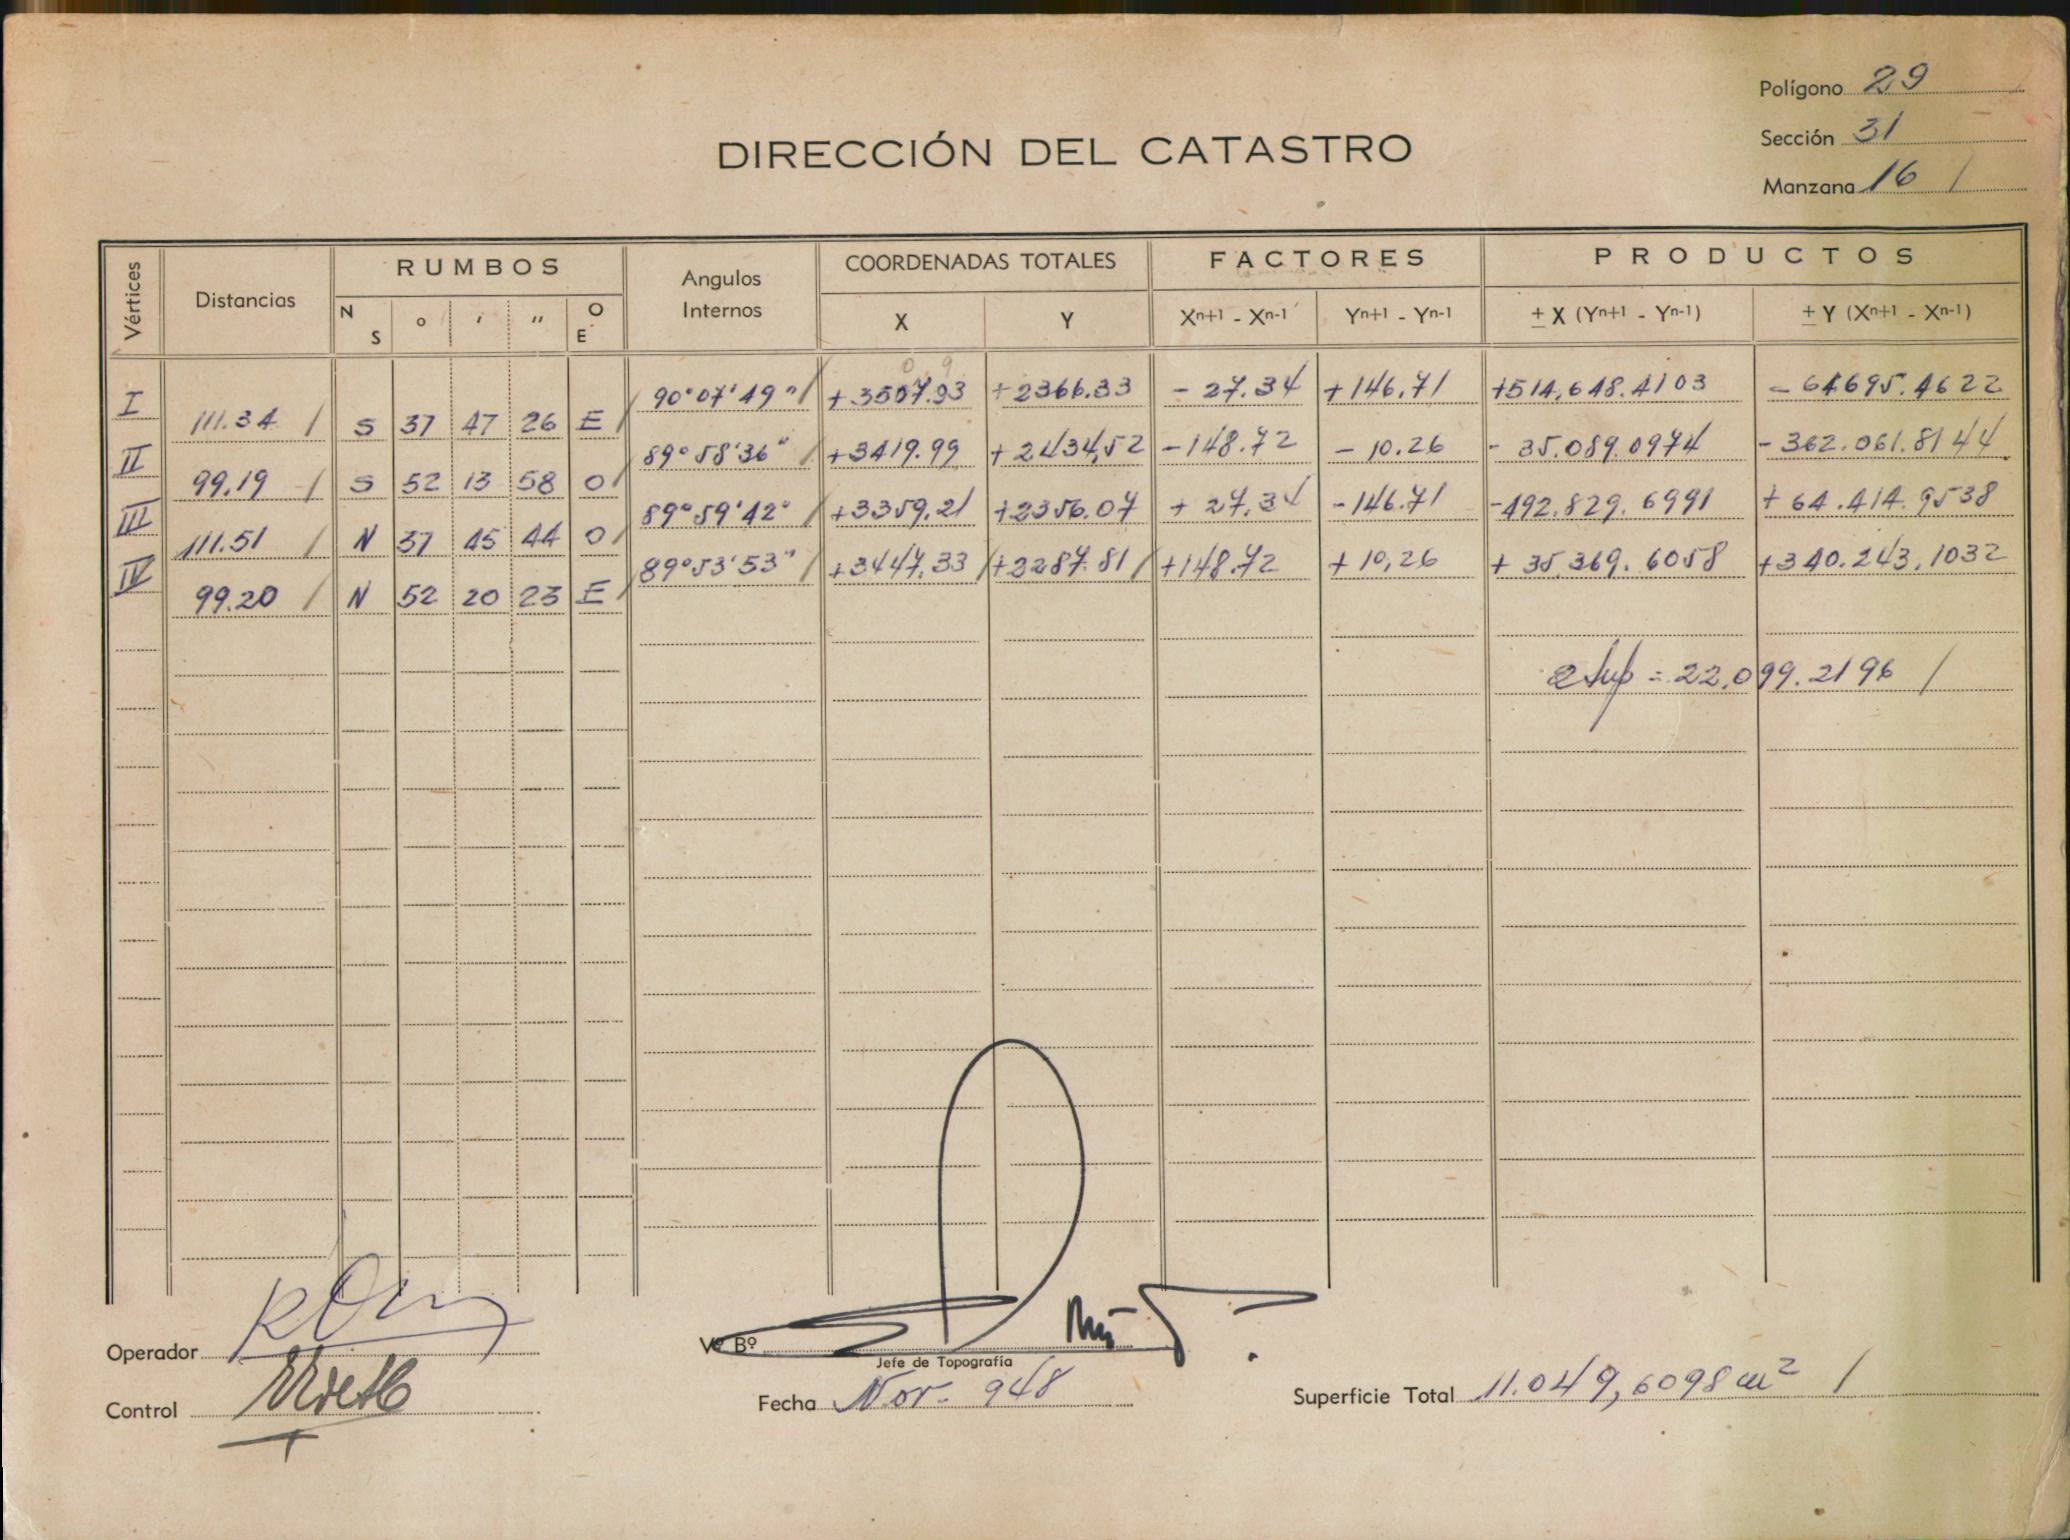 Polígono 29
Sección 31
Manzana 16 /
DIRECCIÓN DEL CATASTRO
Vértices Distancias RUMBOS Angulos Internos COORDENADAS TOTALES FACTORES PRODUCTOS
N S o ' " O E X Y Xn+1 - Xn-1 Yn+1 - Yn-1 ± X (Yn+1 - Yn-1) ± Y (Xn+1 - Xn-1)
I 90°07'49" / +3507.93 +2366.33 - 27.34 +146.71 +514,648.4103 - 64695.4622
111.34 / S 37 47 26 E /
II 89°58'36" / +3419.99 +2434,52 -148.72 - 10.26 - 35.089.0974 - 362.061.8144
99.19 / S 52 13 58 O /
III 89°59'42" / +3359,21 +2356.07 + 27.34 -146.71 -492.829.6991 + 64.414.9538
111.51 / N 37 45 44 O /
IV 89°53'53" / +3447,33 / +2287.81 / +148.72 + 10,26 + 35,369.6058 +340.243,1032
99.20 / N 52 20 23 E /
2 Sup = 22.099.2196 /
Operador
Vº Bº
Jefe de Topografía
Control
Fecha Nov. 948
Superficie Total 11.049,6098 m² /